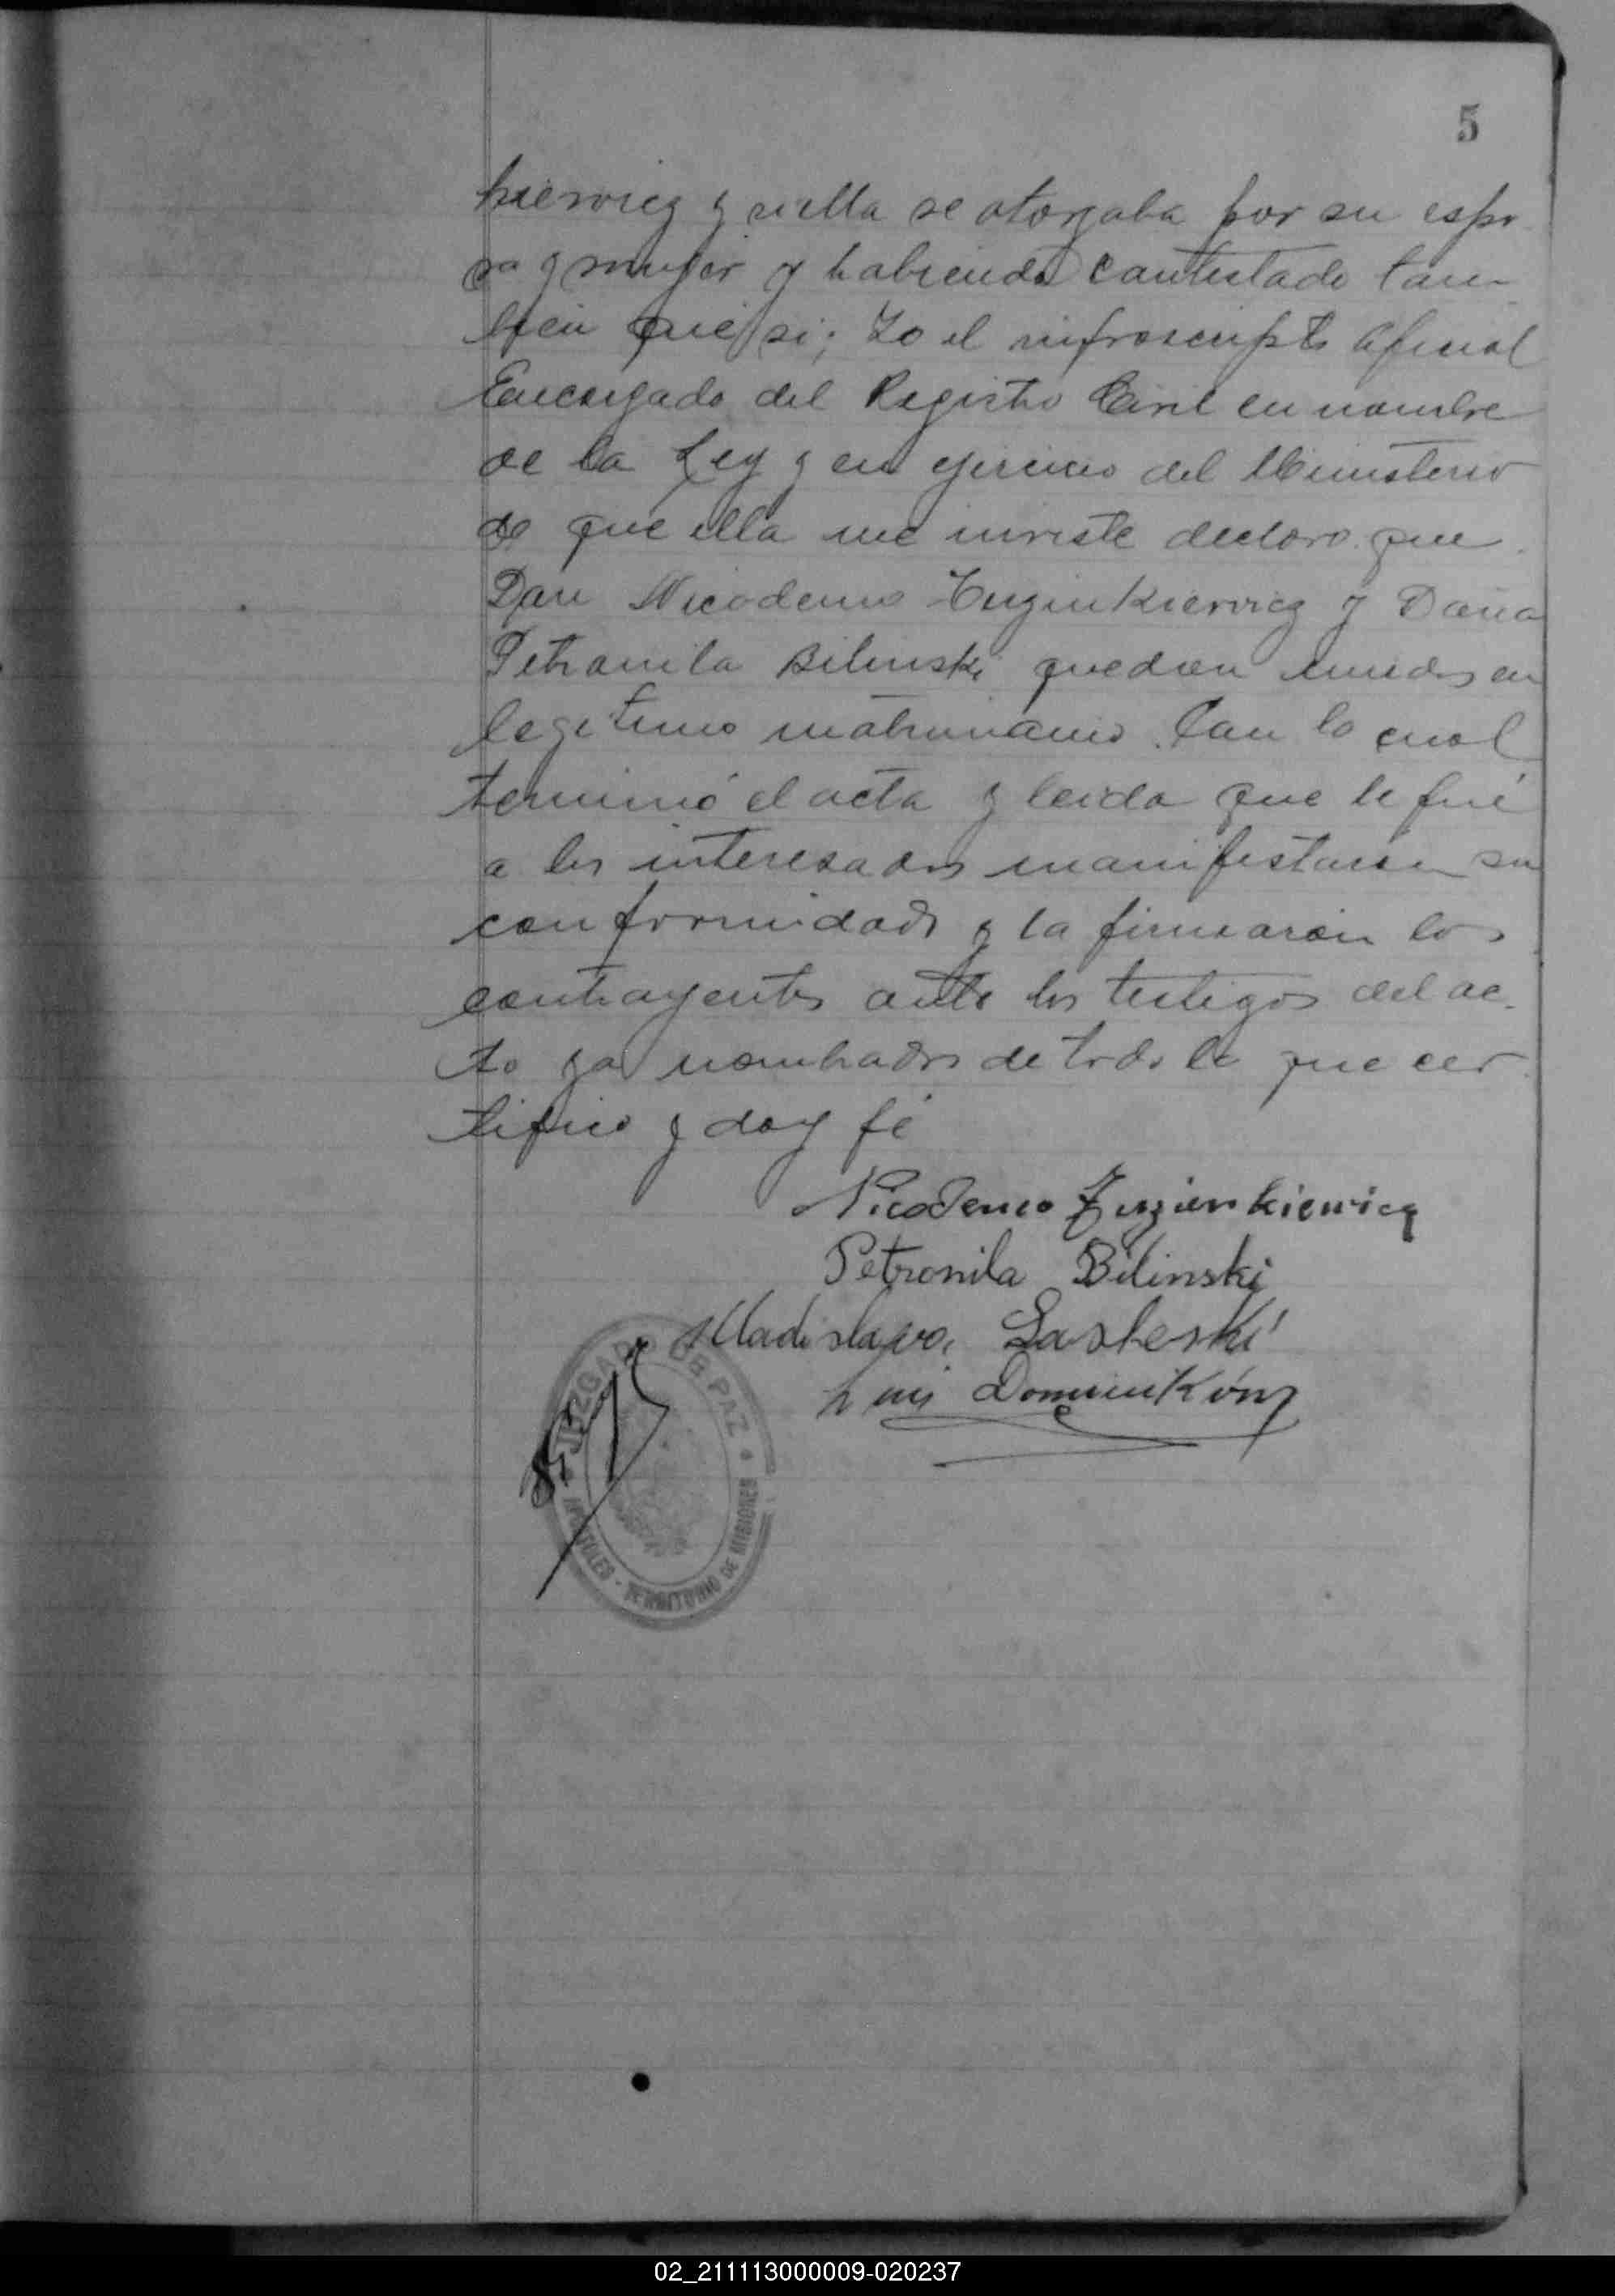 5
kiewicz y si ella se otorgaba por su espo
sa y mujer y habiendo contestado tam-
bien que si; Yo el infrascripto Oficial
Encargado del Registro Civil en nombre
de la Ley y en ejercicio del Ministerio
de que ella me inviste declaro que
Don Nicodemo Zuzinkiewicz y Doña
Petronila Bilinski quedan unidos en
legitimo matrimonio. Con lo cual
terminó el acta y leida que le fué
a los interesados manifestaron su
conformidad y la firmaron los
contrayentes ante los testigos del ac-
to ya nombrados de todo lo que cer
tifico y doy fé
Nicodemo Zuzienkiewicz
Petronila Bilinski
Wladislavo
Luis
JUZGADO DE PAZ
APOSTOLES - TERRITORIO DE MISIONES
02_211113000009-020237